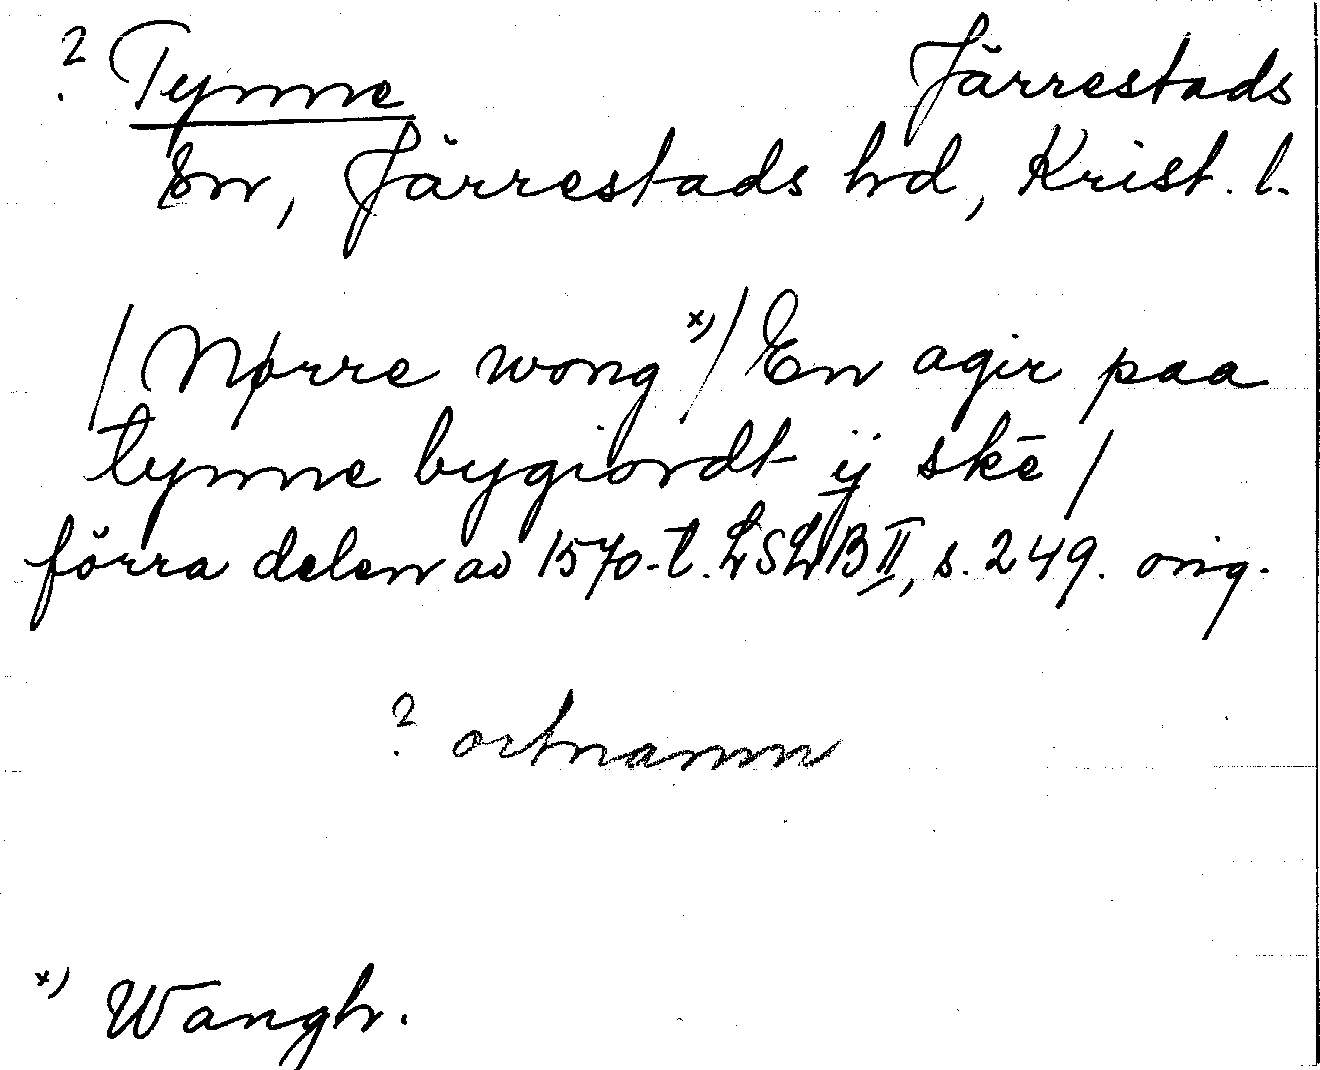 ? Tynne Järrestads
sn, Järrestads hd, Krist. l.
/ Nørre wong x) / En agir paa
tynne bygiordt ij skē /
förra delen av 1570-t. LSLB II, s. 249. orig.
? ortnamn
x) Wangh.